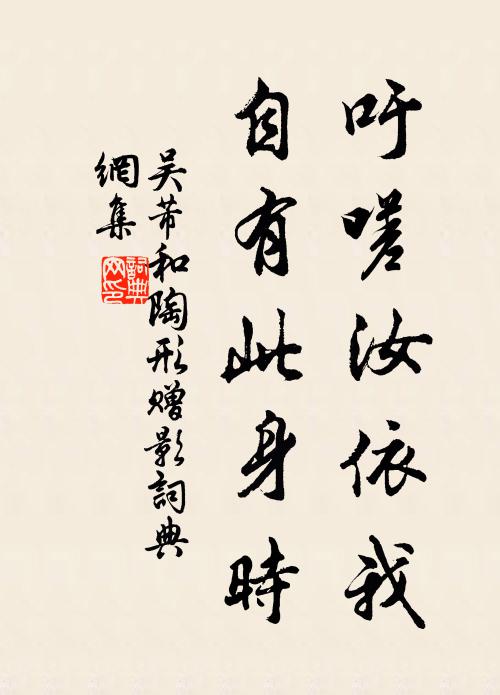 吁嗟汝依我
自有此身時
吳芾和陶形贈影詞典
網集
詞典網印